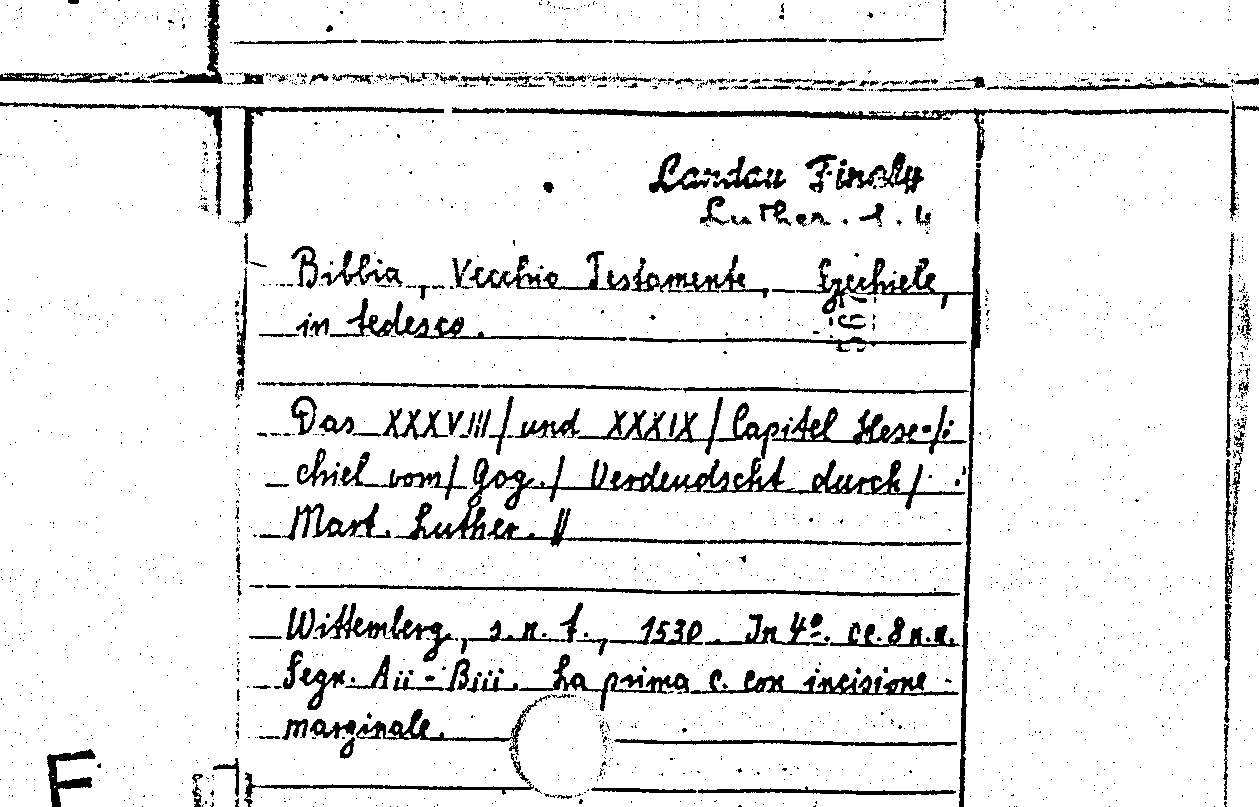 Landau Finaly
Luther. 1. 4
Bibbia, Vecchio Testamente, Ezechiele,
in tedesco.
Das XXXVIII/ und XXXIX/ Capitel Hese-/:
chiel vom/ Gog./ Verdeudscht durch/
Mart. Luther. //
Wittemberg, s. n. t., 1530. In 4º. cc. 8 n.n.
Segn. Aii - Biii. La prima c. con incisione
marginale.
F